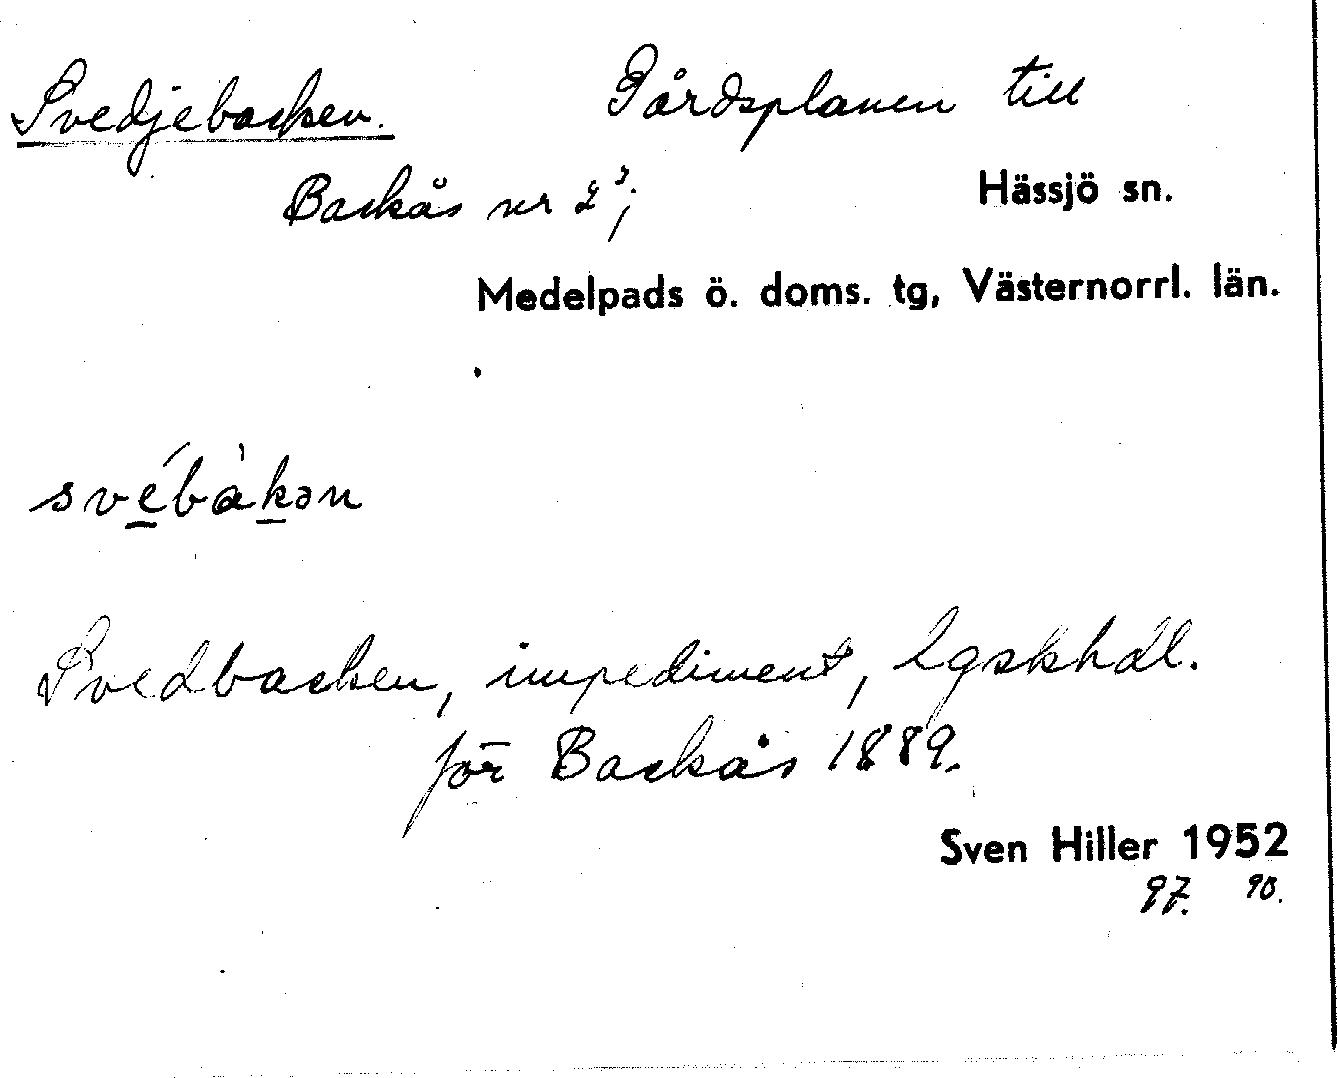 Svedjebacken. Gårdsplanen till
Backås nr 2³; Hässjö sn.
Medelpads ö. doms. tg, Västernorrl. län.
svébàkən
Svedbacken, impediment, lgskhdl.
för Backås 1889.
Sven Hiller 1952
97. 90.